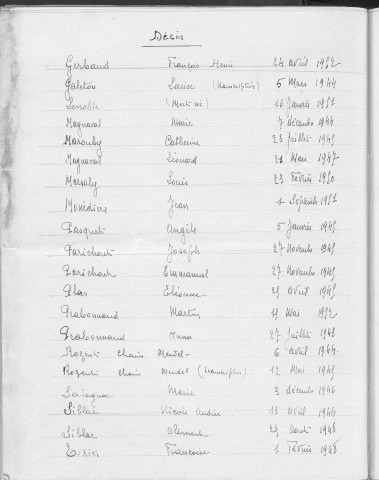 Décès
Gerbaud François Henri 24 avril 1952
Galetou Louise (transcription) 5 Mars 1944
Lenoble (Mort né) 16 Janvier 1951
Magnaval Marie 7 décembre 1944
Marouby Catherine 23 Juillet 1945
Magnaval Léonard 21 Mars 1947
Marsaly Louis 23 Février 1950
Monédière Jean 1 Septembre 1951
Pasquet Angèle 5 Janvier 1945
Parichout Joseph 27 Novembre 1945
Parichout Emmanuel 27 Novembre 1945
Plas Etienne avril 1945
Prabonnaud Martin Mai 1952
Prabonnaud Anna 27 Juillet
Rozent Chaim Mendel 6 avril 1944
Rozent Chaim Mendel (transcription) 12 Mai 1945
Marie 3 décembre 1946
Siblac Nicole Andrée 11 avril 1944
Siblac Clément août 1948
Tixier Françoise 1 Février 1948